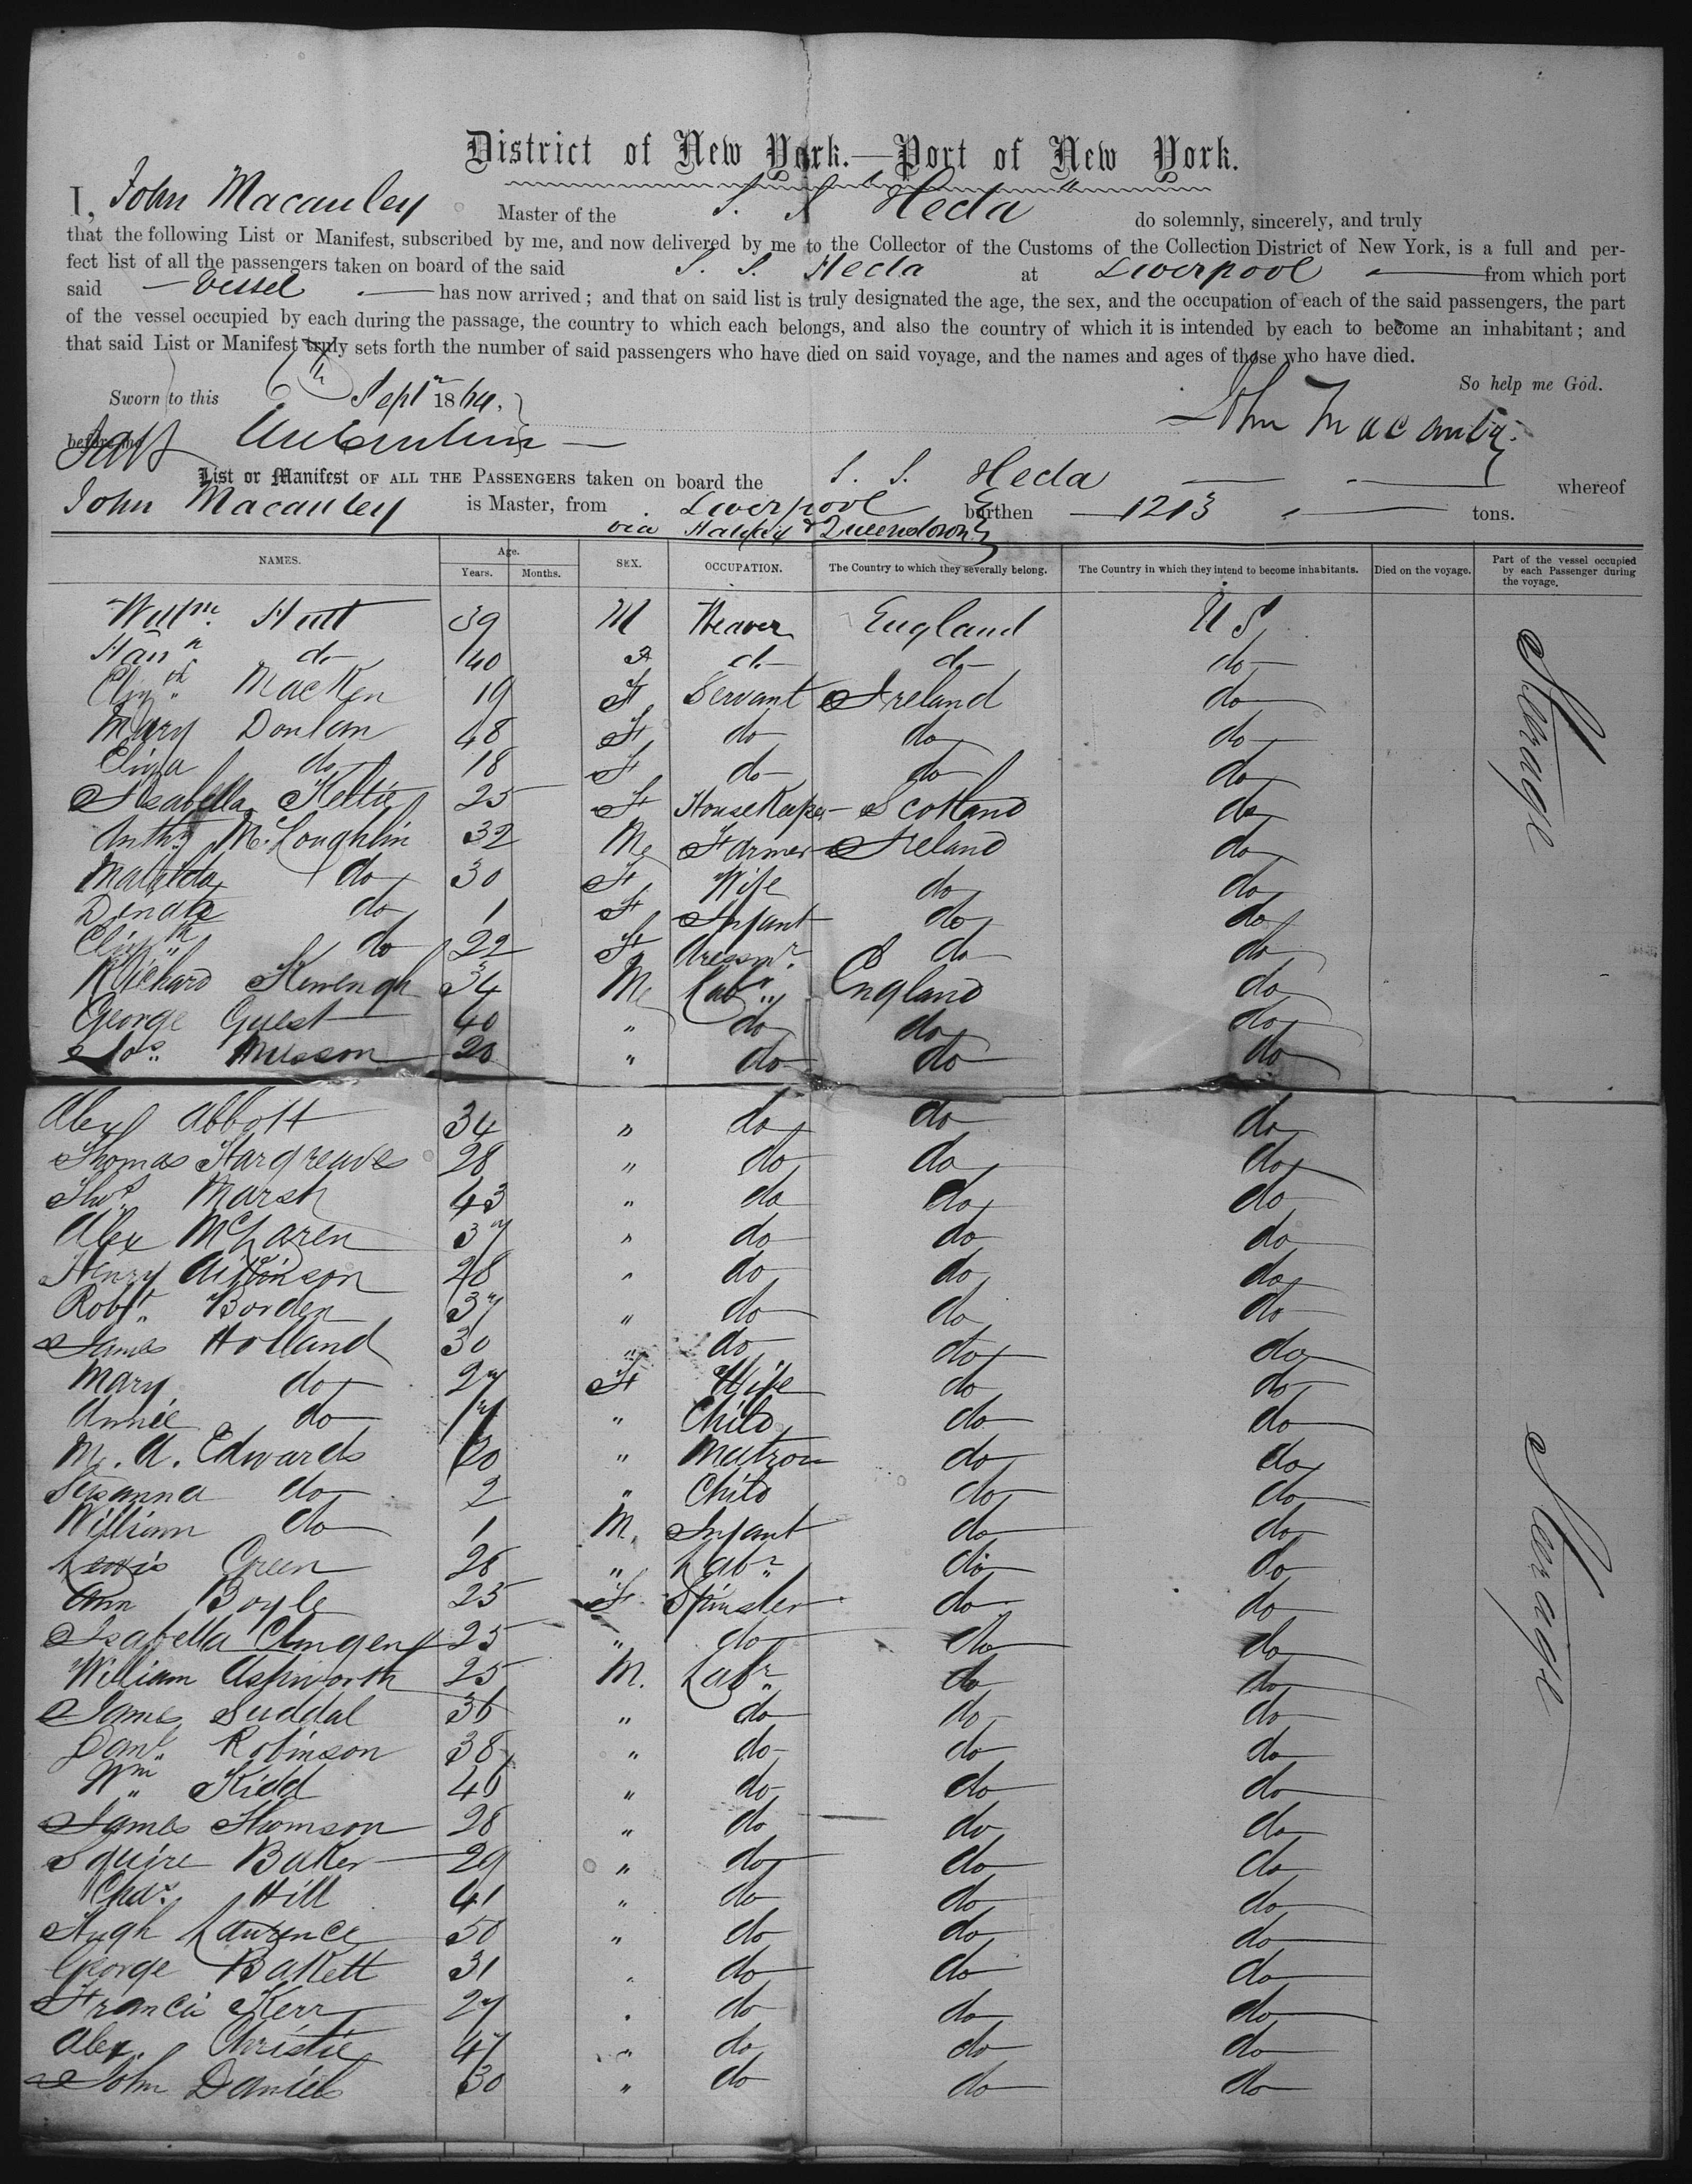 District of New York.—Port of New York.
I, John Macauley Master of the S. S. Hecla do solemnly, sincerely, and truly
that the following List or Manifest, subscribed by me, and now delivered by me to the Collector of the Customs of the Collection District of New York, is a full and per-
fect list of all the passengers taken on board of the said S. S. Hecla at Liverpool from which port
said Vessel has now arrived; and that on said list is truly designated the age, the sex, and the occupation of each of the said passengers, the part
of the vessel occupied by each during the passage, the country to which each belongs, and also the country of which it is intended by each to become an inhabitant; and
that said List or Manifest truly sets forth the number of said passengers who have died on said voyage, and the names and ages of those who have died.
So help me God.
Sworn to this 6th Sept 1864.
John Macauley
before me
List or Manifest OF ALL THE PASSENGERS taken on board the S. S. Hecla whereof
John Macauley is Master, from Liverpool burthen 1213 tons.
via Halifax & Queenstown
NAMES. Age. Years. Months. SEX. OCCUPATION. The Country to which they severally belong. The Country in which they intend to become inhabitants. Died on the voyage. Part of the vessel occupied by each Passenger during the voyage.
Willm. 39 M Weaver England U S Steerage
do 40 F do do do
MacKen 19 F Servant Ireland do
Mary Donlan 48 F do do do
Eliza do 18 F do do do
Isabella Keltie 25 F HouseKeeper Scotland do
Anthy McLoughlin 32 M Farmer Ireland do
Matilda do 30 F Wife do do
Dinah do 1 F Infant do do
Elizth do 22 F Dressmr. do do
Richard 34 M Labr England do
George Guest 40 " do do do
Jos. Musson 20 " do do do
Alexr Abbott 34 " do do do
Thomas Hargreaves 28 " do do do
Thos. Marsh 43 " do do do
Alex McLaren 37 " do do do
Henry Aitkinson 28 " do do do
Robt. Borden 37 " do do do
James Holland 30 " do do do
Mary do 27 F Wife do do
Annie do " Child do do
M. A. Edwards 20 " Matron do do
Susanna do 2 " Child do do Steerage
William do 1 M. Infant do do
Lewis Green 26 " Labr do do
Ann Boyle 25 F Spinster do do
Isabella 25 " do do do
William Ashworth 25 M. Labr do do
James Suddal 36 " do do do
Danl. Robinson 38 " do do do
Wm Kidd 40 " do do do
James Thomson 28 " do do do
Squire Baker 29 " do do do
Chas. Hill 41 " do do do
Hugh Laurence 50 " do do do
George Bakett 31 " do do do
Francis Kerr 27 " do do do
Alex. Christie 47 " do do do
John Daniels 30 " do do do